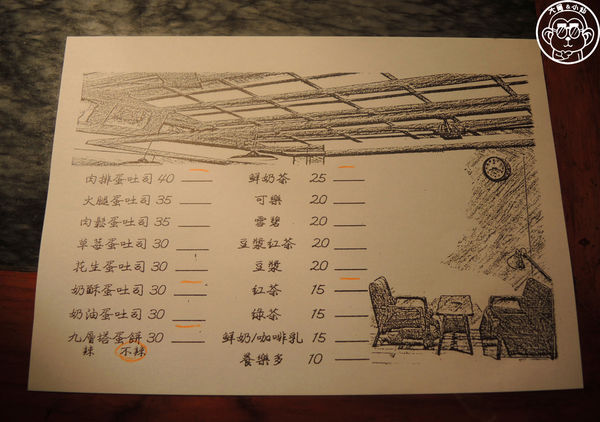 大胃&小妞
肉排蛋吐司 40 鮮奶茶 25
火腿蛋吐司 35 可樂 20
肉鬆蛋吐司 35 雪碧 20
草莓蛋吐司 30 豆漿紅茶 20
花生蛋吐司 30 豆漿 20
奶酥蛋吐司 30 紅茶 15
奶油蛋吐司 30 綠茶 15
九層塔蛋餅 30 鮮奶/咖啡乳 15
辣 不辣 養樂多 10